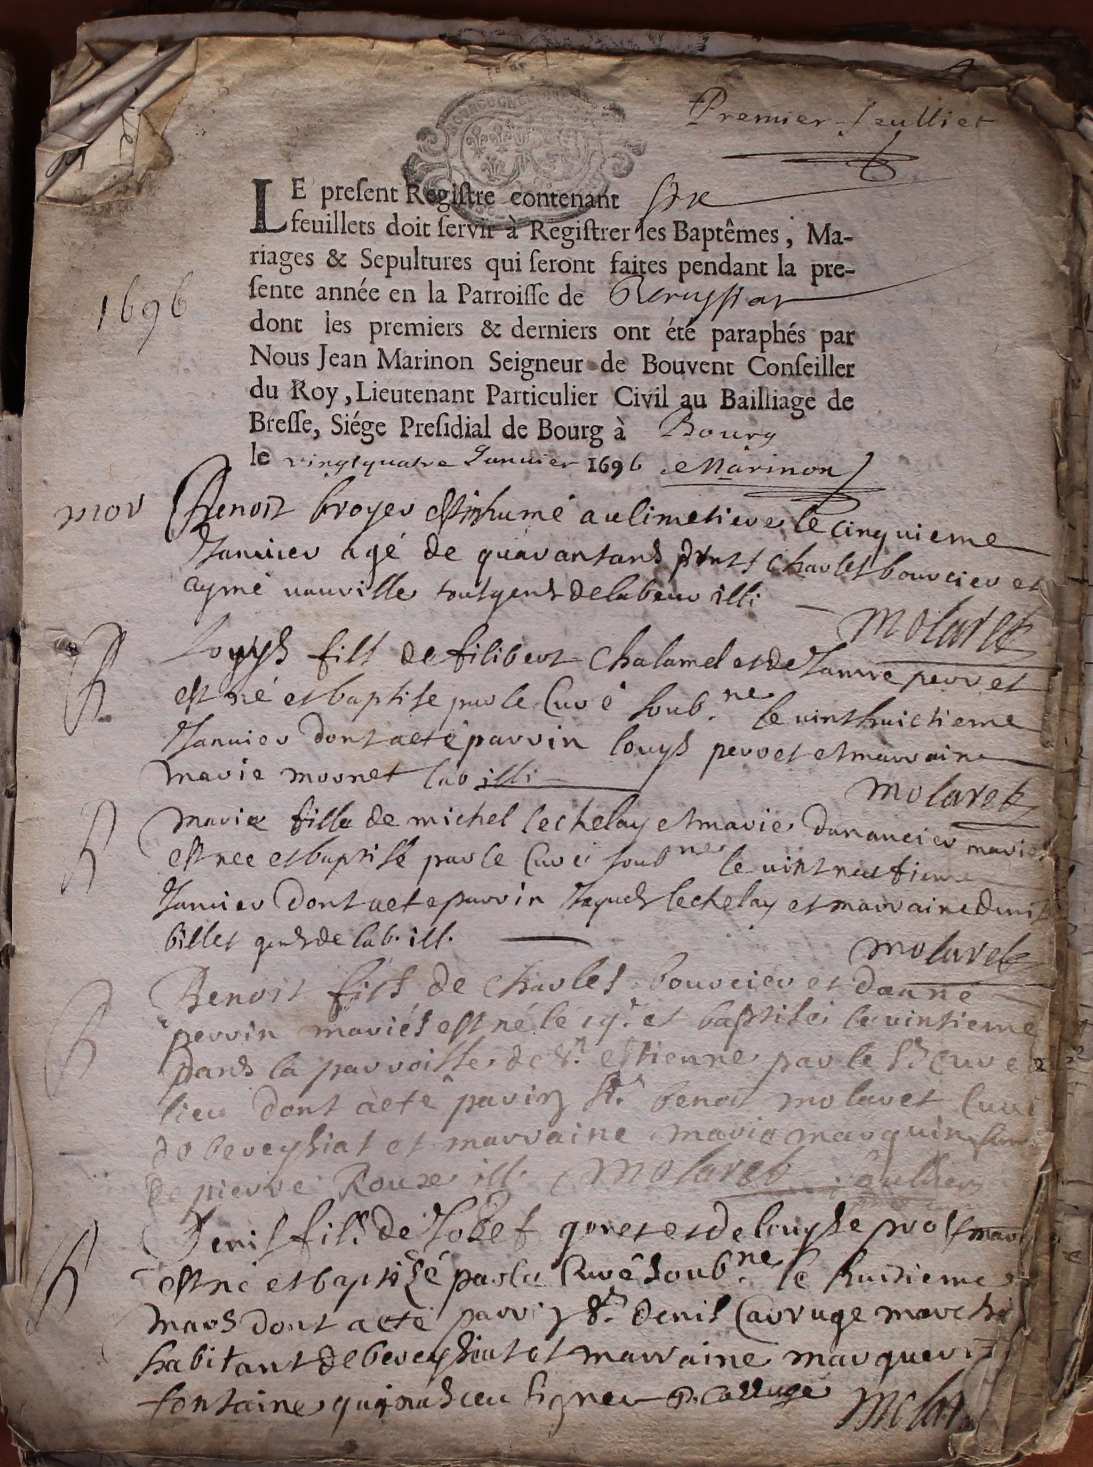 Premier feulliet
LE preſent Regiſtre contenant six
feuillets doit ſervir à Regiſtrer les Baptêmes, Ma-
riages & Sepultures qui ſeront faites pendant la pre-
ſente année en la Parroiſſe de
1696
dont les premiers & derniers ont été paraphés par
Nous Jean Marinon Seigneur de Bouvent Conſeiller
du Roy, Lieutenant Particulier Civil au Bailliage de
Breſſe, Siége Preſidial de Bourg à Bourg
le vingtquatre Januier 1696 Marinon
mor Benoit broyer est inhumé au simetiere le cinquieme
Januier agé de quarantans pntts Charles bourcier et
aymé uauville tous gens de labeur illi
Molaret
Louys fils de filibert Chalamel et de Janne perret
est né et baptisé par le Curé soub.ne le uint huictieme
Januier dont acte parrin louys perret et marraine
marie mornet lab illi
molaret
B marie fille de michel lechelay et marie danancier mariés
est nee et baptisé par le Curé soub ne le uint neufieme
Januier dont acte parrin Jaques lechelay et marraine denise
billet gens de lab. ill.
molaret
B Benoit fils de Charles bourcier et
perrin mariés est né le 19e et baptisé le vintieme
dans la parroisse de St. estienne par le Sr Curé
lieu dont acte parrin Sr. benoit molaret Curé
de beveyssiat et marraine marie
de pierre Roux ill. Molaret
B Denis fils de Joseph et de louyse
est né et baptisé par le Curé soub.ne le huitieme
mars dont acte parrin Sr. denis Carruge march
habitant de beveyssiat et marraine marguerite
fontaine qui na sceu signer D. Carruge
Molar